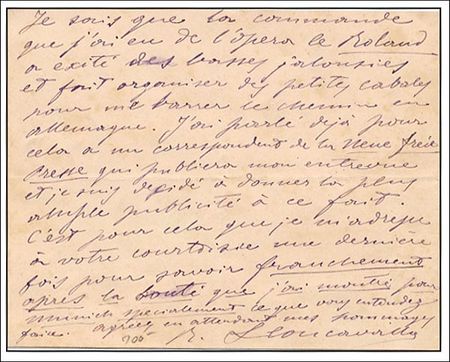 Je sais que la commande
que j'ai eu de l'opera le Roland
a exité des basses jalousies
et fait organiser des petites cabales
pour me barrer le chemin en
allemagne. J'ai parlé dejà pour
cela a un correspondent de la Neue freie
Presse qui publiera mon entrevue
et je suis decidé à donner la plus
ample publicité à ce fait.
C'est pour cela que je m'adresse
à votre courtoisie une dernière
fois pour savoir franchement
après la bonté que j'ai montré pour
Munich specialement ce que vous entendez
faire. agreez en attendant mes hommages
R. Leoncavallo